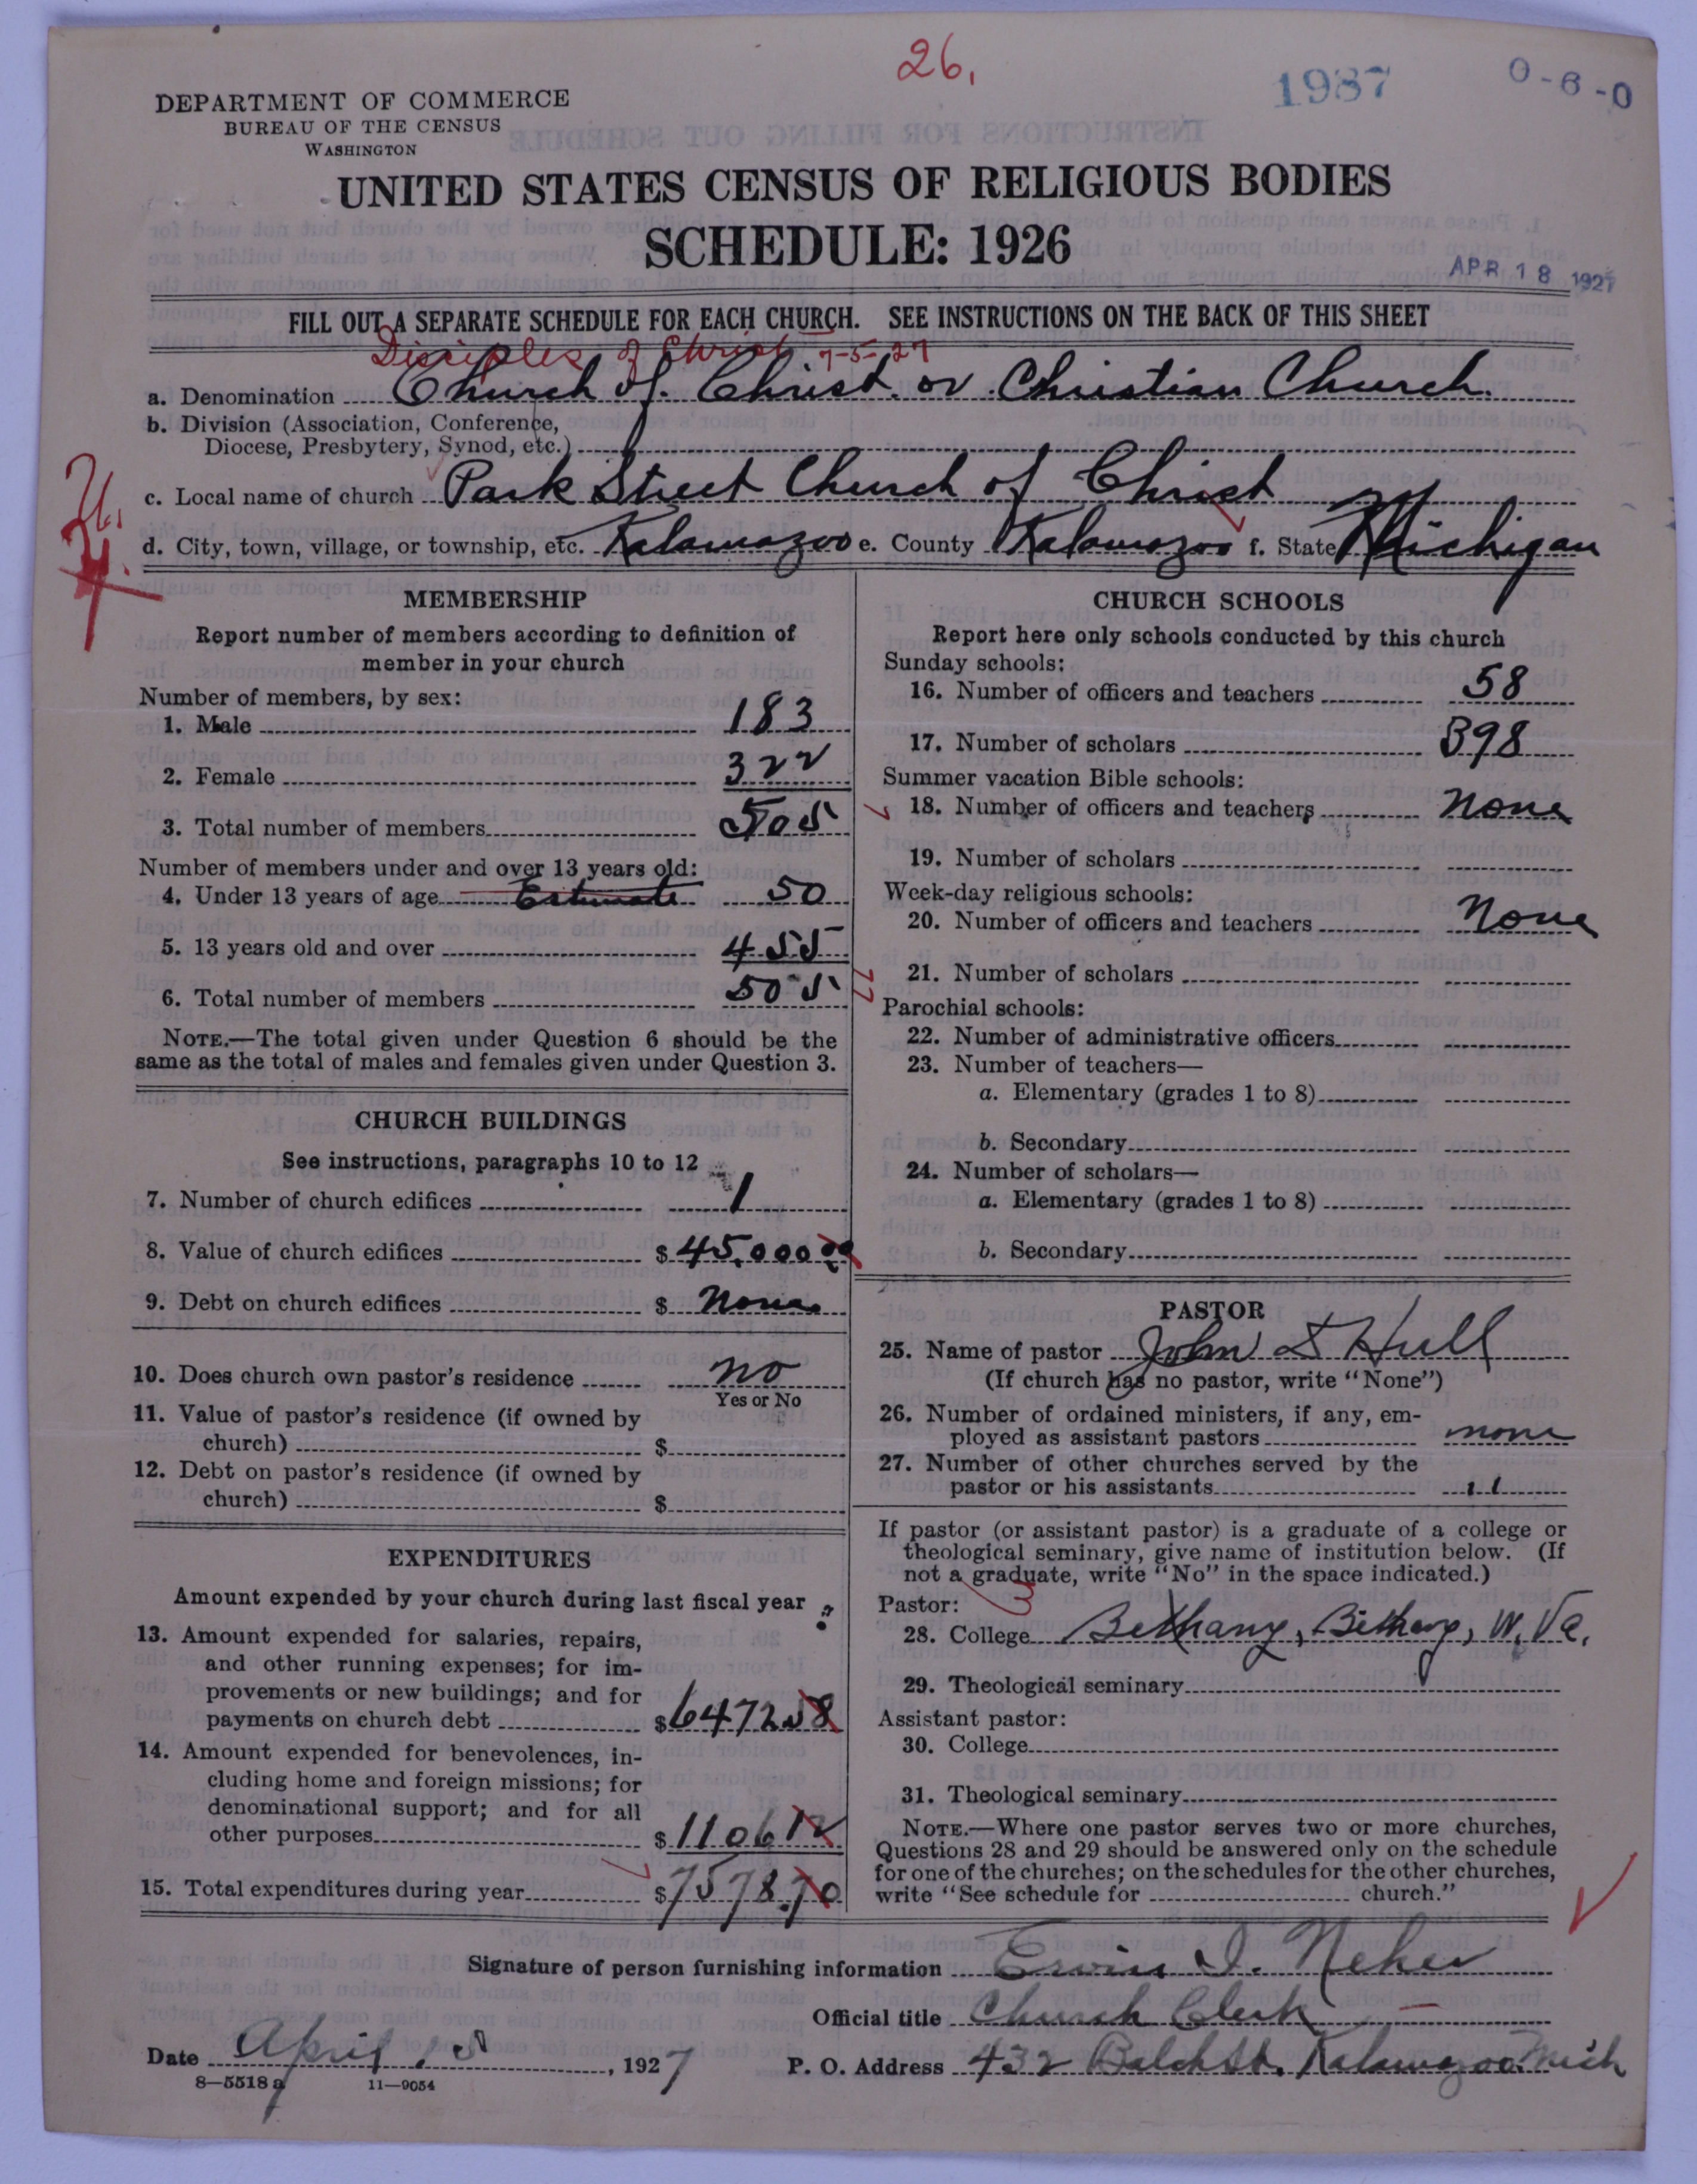 26.
1987
0-6-0
DEPARTMENT OF COMMERCE
BUREAU OF THE CENSUS
WASHINGTON
UNITED STATES CENSUS OF RELIGIOUS BODIES
SCHEDULE: 1926
APR 18 1927
FILL OUT A SEPARATE SCHEDULE FOR EACH CHURCH. SEE INSTRUCTIONS ON THE BACK OF THIS SHEET
Disciples of Christ 7-5-27
a. Denomination Church of Christ or Christian Church.
b. Division (Association, Conference,
Diocese, Presbytery, Synod, etc.)
c. Local name of church Park Street Church of Christ
d. City, town, village, or township, etc. Kalamazoo e. County Kalamazoo f. State Michigan
MEMBERSHIP
Report number of members according to definition of
member in your church
Number of members, by sex:
1. Male 183
2. Female 322
3. Total number of members 505
Number of members under and over 13 years old:
4. Under 13 years of age Estimate 50
5. 13 years old and over 455
6. Total number of members 505
NOTE.—The total given under Question 6 should be the
same as the total of males and females given under Question 3.
CHURCH BUILDINGS
See instructions, paragraphs 10 to 12
7. Number of church edifices 1
8. Value of church edifices $ 45,000 00
9. Debt on church edifices $ None
10. Does church own pastor's residence no
Yes or No
11. Value of pastor's residence (if owned by
church) $
12. Debt on pastor's residence (if owned by
church) $
EXPENDITURES
Amount expended by your church during last fiscal year:
13. Amount expended for salaries, repairs,
and other running expenses; for im-
provements or new buildings; and for
payments on church debt $ 6472 58
14. Amount expended for benevolences, in-
cluding home and foreign missions; for
denominational support; and for all
other purposes $ 1106 12
15. Total expenditures during year $ 7578.70
CHURCH SCHOOLS
Report here only schools conducted by this church
Sunday schools:
16. Number of officers and teachers 58
17. Number of scholars 398
Summer vacation Bible schools:
18. Number of officers and teachers None
19. Number of scholars
Week-day religious schools:
20. Number of officers and teachers None
21. Number of scholars
Parochial schools:
22. Number of administrative officers
23. Number of teachers—
a. Elementary (grades 1 to 8)
b. Secondary
24. Number of scholars—
a. Elementary (grades 1 to 8)
b. Secondary
PASTOR
25. Name of pastor John S Hull
(If church has no pastor, write "None")
26. Number of ordained ministers, if any, em-
ployed as assistant pastors none
27. Number of other churches served by the
pastor or his assistants "
If pastor (or assistant pastor) is a graduate of a college or
theological seminary, give name of institution below. (If
not a graduate, write "No" in the space indicated.)
Pastor: 3
28. College Bethany, Bethany, W. Va.
29. Theological seminary
Assistant pastor:
30. College
31. Theological seminary
NOTE.—Where one pastor serves two or more churches,
Questions 28 and 29 should be answered only on the schedule
for one of the churches; on the schedules for the other churches,
write "See schedule for church."
Signature of person furnishing information Erwin I. Neher
Official title Church Clerk
Date April 15, 1927
P. O. Address 432 Balch St. Kalamazoo Mich
8—5518a 11—9054